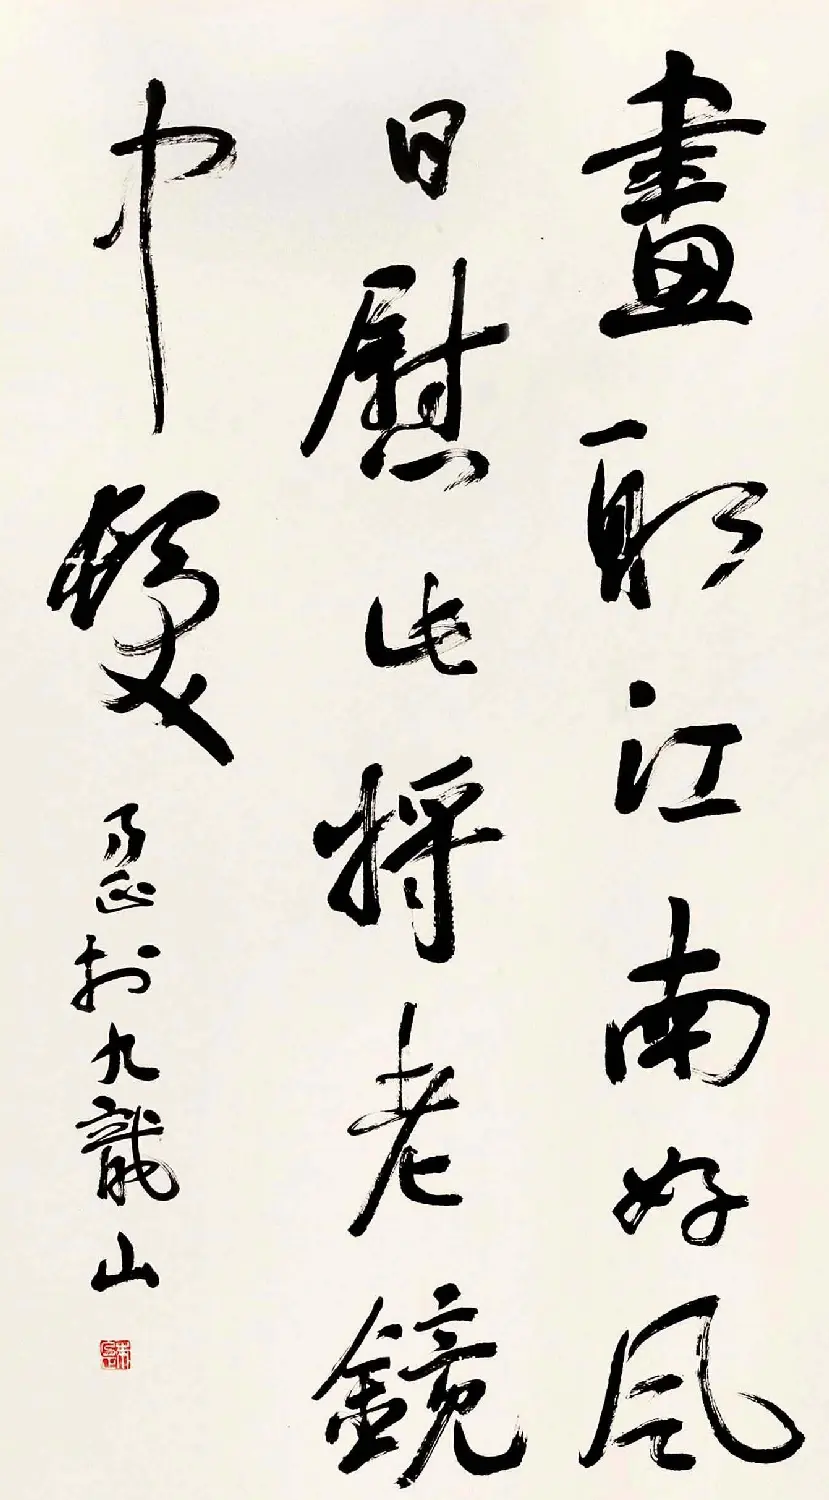 畫取江南好風
日慰此將老鏡
中髮
乃正於九龍山